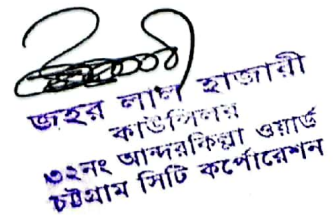 জহর লাল হাজারী
কাউন্সিলর
৩২নং আন্দরকিল্লা ওয়ার্ড
চট্টগ্রাম সিটি কর্পোরেশন